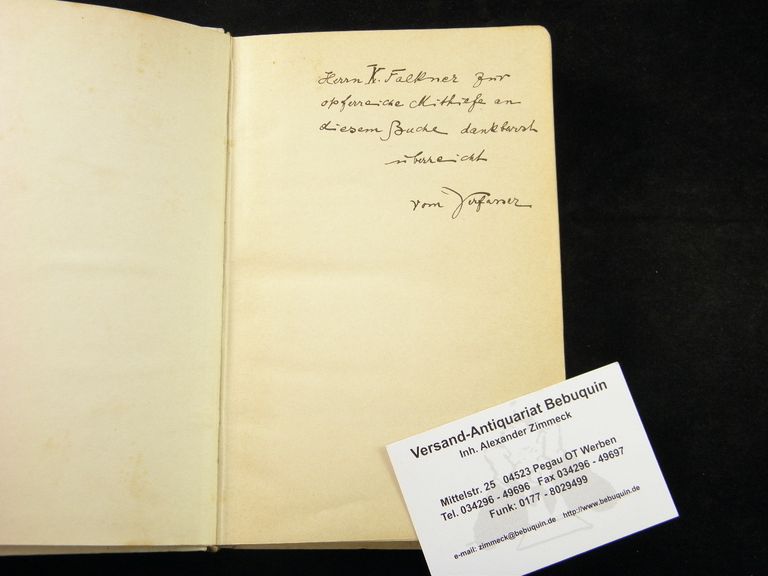 Herrn K. Falkner zur
opferreiche Mithilfe an
diesem Buche dankbarst
überreicht
vom Verfasser
Versand-Antiquariat Bebuquin
Inh. Alexander Zimmeck
Mittelstr. 25 04523 Pegau OT Werben
Tel. 034296 - 49696 Fax 034296 - 49697
Funk: 0177 - 8029499
e-mail: zimmeck@bebuquin.de http://www.bebuquin.de